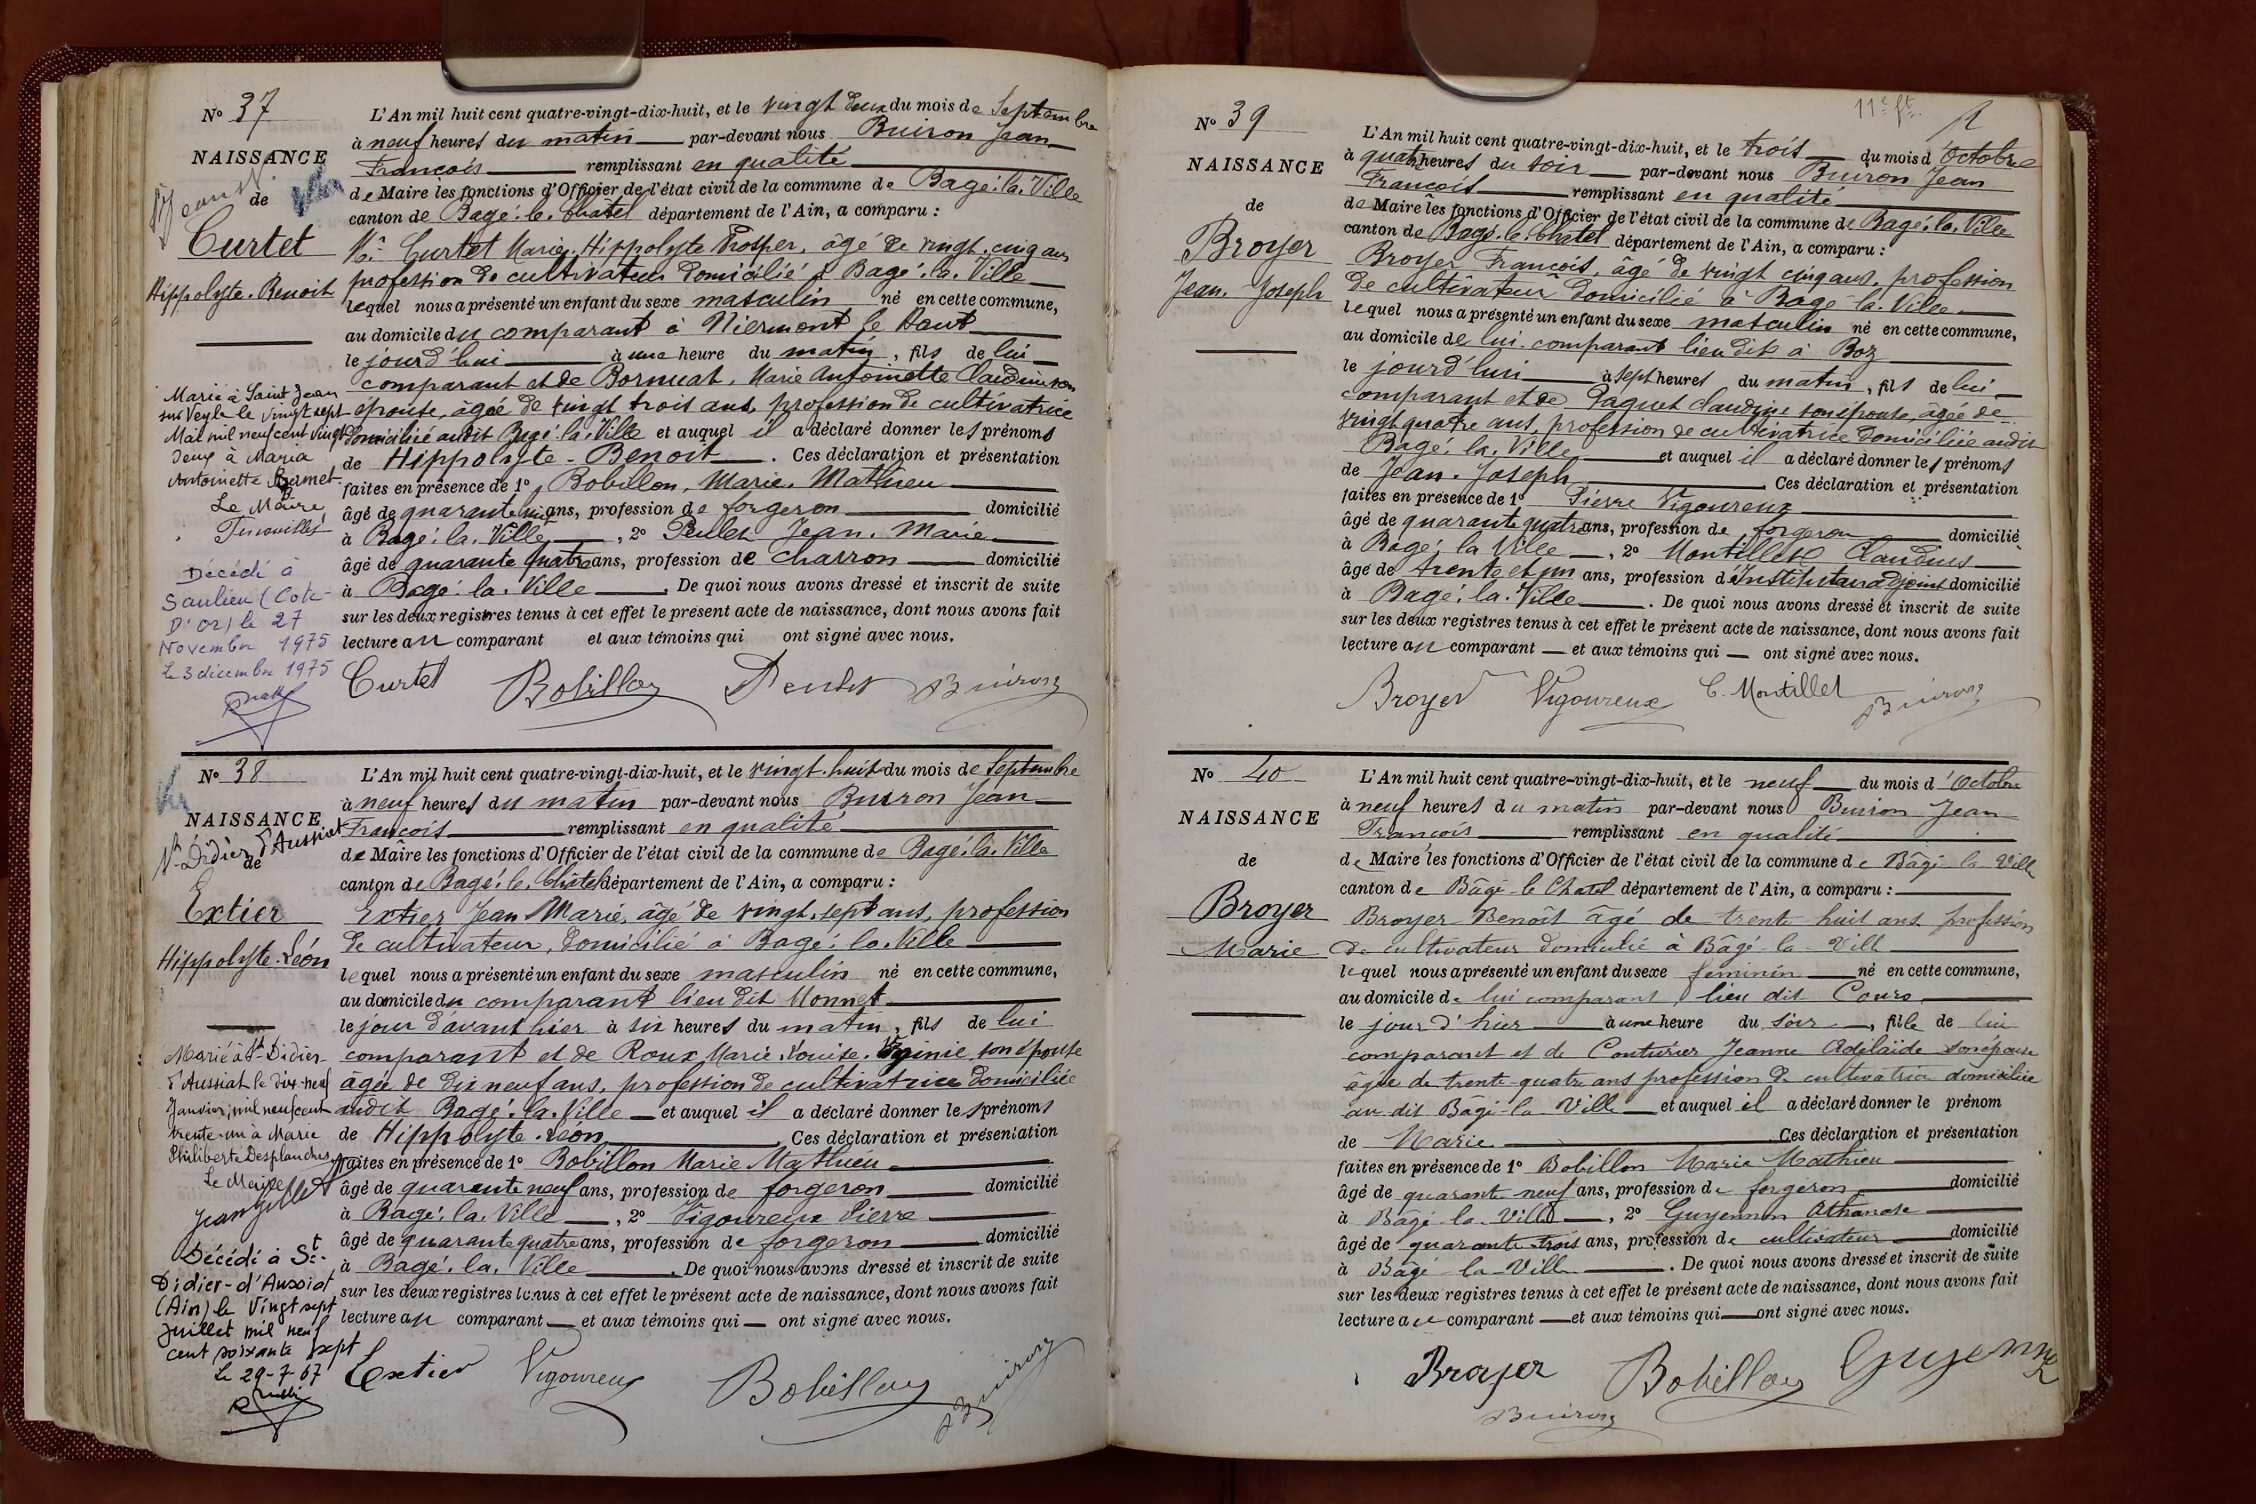 No 37
NAISSANCE
de
Curtet
Hippolyte-Benoit
Marié à Saint Jean
sur Veyle le vingt sept
Mai mil neuf cent vingt
deux à Maria
Antoinette
Le Maire
Décédé à
Saulieu (Côte-
D'or) le 27
Novembre 1975
Le 3 décembre 1975
L'An mil huit cent quatre-vingt-dix-huit, et le vingt deux du mois de Septembre
à neuf heures du matin par-devant nous Buiron Jean
François remplissant en qualité
de Maire les fonctions d'Officier de l'état civil de la commune de Bagé-la-Ville
canton de Bagé-le-Châtel département de l'Ain, a comparu :
Mr Curtet Marie, Hippolyte Prosper, âgé de vingt-cinq ans
profession de cultivateur domicilié à Bagé-la-Ville
lequel nous a présenté un enfant du sexe masculin né en cette commune,
au domicile du comparant à Niermont le Haut
le jourd'hui à une heure du matin, fils de lui
comparant et de Bornuat, Marie Antoinette Claudine son
épouse, âgée de vingt trois ans, profession de cultivatrice
domiciliée audit Bagé-la-Ville et auquel il a déclaré donner les prénoms
de Hippolyte-Benoit. Ces déclaration et présentation
faites en présence de 1° Bobillon, Marie-Mathieu
âgé de quarante ans, profession de forgeron domicilié
à Bagé-la-Ville, 2° Jean-Marie
âgé de quarante quatre ans, profession de charron domicilié
à Bagé-la-Ville. De quoi nous avons dressé et inscrit de suite
sur les deux registres tenus à cet effet le présent acte de naissance, dont nous avons fait
lecture au comparant et aux témoins qui ont signé avec nous.
Curtet Bobillon Buiron
No 38
NAISSANCE
St Didier d'Aussiat
de
Extier
Hippolyte-Léon
Marié à St-Didier-
d'Aussiat le dix-neuf
Janvier mil neuf cent
trente-un à Marie
Philiberte Desplanches
Le Maire
Décédé à St-
Didier-d'Aussiat
(Ain) le Vingt sept
Juillet mil neuf
cent soixante sept
Le 29-7-67
L'An mil huit cent quatre-vingt-dix-huit, et le vingt-huit du mois de Septembre
à neuf heures du matin par-devant nous Buiron Jean
François remplissant en qualité
de Maire les fonctions d'Officier de l'état civil de la commune de Bagé-la-Ville
canton de Bagé-le-Châtel département de l'Ain, a comparu :
Extier Jean Marie, âgé de vingt-sept ans, profession
de cultivateur, domicilié à Bagé-la-Ville
lequel nous a présenté un enfant du sexe masculin né en cette commune,
au domicile du comparant lieu dit Monnet
le jour d'avant hier à six heures du matin, fils de lui
comparant et de Roux Marie-Louise-Virginie, son épouse
âgée de dix neuf ans, profession de cultivatrice domiciliée
audit Bagé-la-Ville et auquel il a déclaré donner les prénoms
de Hippolyte-Léon. Ces déclaration et présentation
faites en présence de 1° Bobillon Marie Mathieu
âgé de quarante neuf ans, profession de forgeron domicilié
à Bagé-la-Ville, 2° Vigoureux Pierre
âgé de quarante quatre ans, profession de forgeron domicilié
à Bagé-la-Ville. De quoi nous avons dressé et inscrit de suite
sur les deux registres tenus à cet effet le présent acte de naissance, dont nous avons fait
lecture au comparant et aux témoins qui ont signé avec nous.
Extier Vigoureux Bobillon Buiron
11e ft
No 39
NAISSANCE
de
Broyer
Jean-Joseph
L'An mil huit cent quatre-vingt-dix-huit, et le trois du mois d'Octobre
à quatre heures du soir par-devant nous Buiron Jean
François remplissant en qualité
de Maire les fonctions d'Officier de l'état civil de la commune de Bagé-la-Ville
canton de Bagé-le-Châtel département de l'Ain, a comparu :
Broyer François, âgé de vingt cinq ans, profession
de cultivateur domicilié à Bagé-la-Ville
lequel nous a présenté un enfant du sexe masculin né en cette commune,
au domicile de lui comparant lieu dit à Boz
le jourd'hui à sept heures du matin, fils de lui
comparant et de Paquet Claudine son épouse, âgée de
vingt quatre ans, profession de cultivatrice domiciliée audit
Bagé-la-Ville et auquel il a déclaré donner les prénoms
de Jean-Joseph. Ces déclaration et présentation
faites en présence de 1° Pierre Vigoureux
âgé de quarante quatre ans, profession de forgeron domicilié
à Bagé-la-Ville, 2° Montillet Claudius
âgé de trente et un ans, profession d'Instituteur adjoint domicilié
à Bagé-la-Ville. De quoi nous avons dressé et inscrit de suite
sur les deux registres tenus à cet effet le présent acte de naissance, dont nous avons fait
lecture au comparant et aux témoins qui ont signé avec nous.
Broyer Vigoureux C. Montillet Buiron
No 40
NAISSANCE
de
Broyer
Marie
L'An mil huit cent quatre-vingt-dix-huit, et le neuf du mois d'Octobre
à neuf heures du matin par-devant nous Buiron Jean
François remplissant en qualité
de Maire les fonctions d'Officier de l'état civil de la commune de Bâgé-la-Ville
canton de Bâgé-le-Chatel département de l'Ain, a comparu :
Broyer Benoît âgé de trente huit ans profession
de cultivateur domicilié à Bâgé-la-Ville
lequel nous a présenté un enfant du sexe féminin né en cette commune,
au domicile de lui comparant lieu dit Cours
le jour d'hier à une heure du soir, fille de lui
comparant et de Couturier Jeanne Adélaïde son épouse
âgée de trente-quatre ans profession de cultivatrice domiciliée
au dit Bâgé-la-Ville et auquel il a déclaré donner le prénom
de Marie Ces déclaration et présentation
faites en présence de 1° Bobillon Marie Mathieu
âgé de quarante neuf ans, profession de forgeron domicilié
à Bâgé-la-Ville, 2° Guyennon Athanase
âgé de quarante-trois ans, profession de cultivateur domicilié
à Bâgé-la-Ville. De quoi nous avons dressé et inscrit de suite
sur les deux registres tenus à cet effet le présent acte de naissance, dont nous avons fait
lecture au comparant et aux témoins qui ont signé avec nous.
Broyer Bobillon Guyennon
Buiron